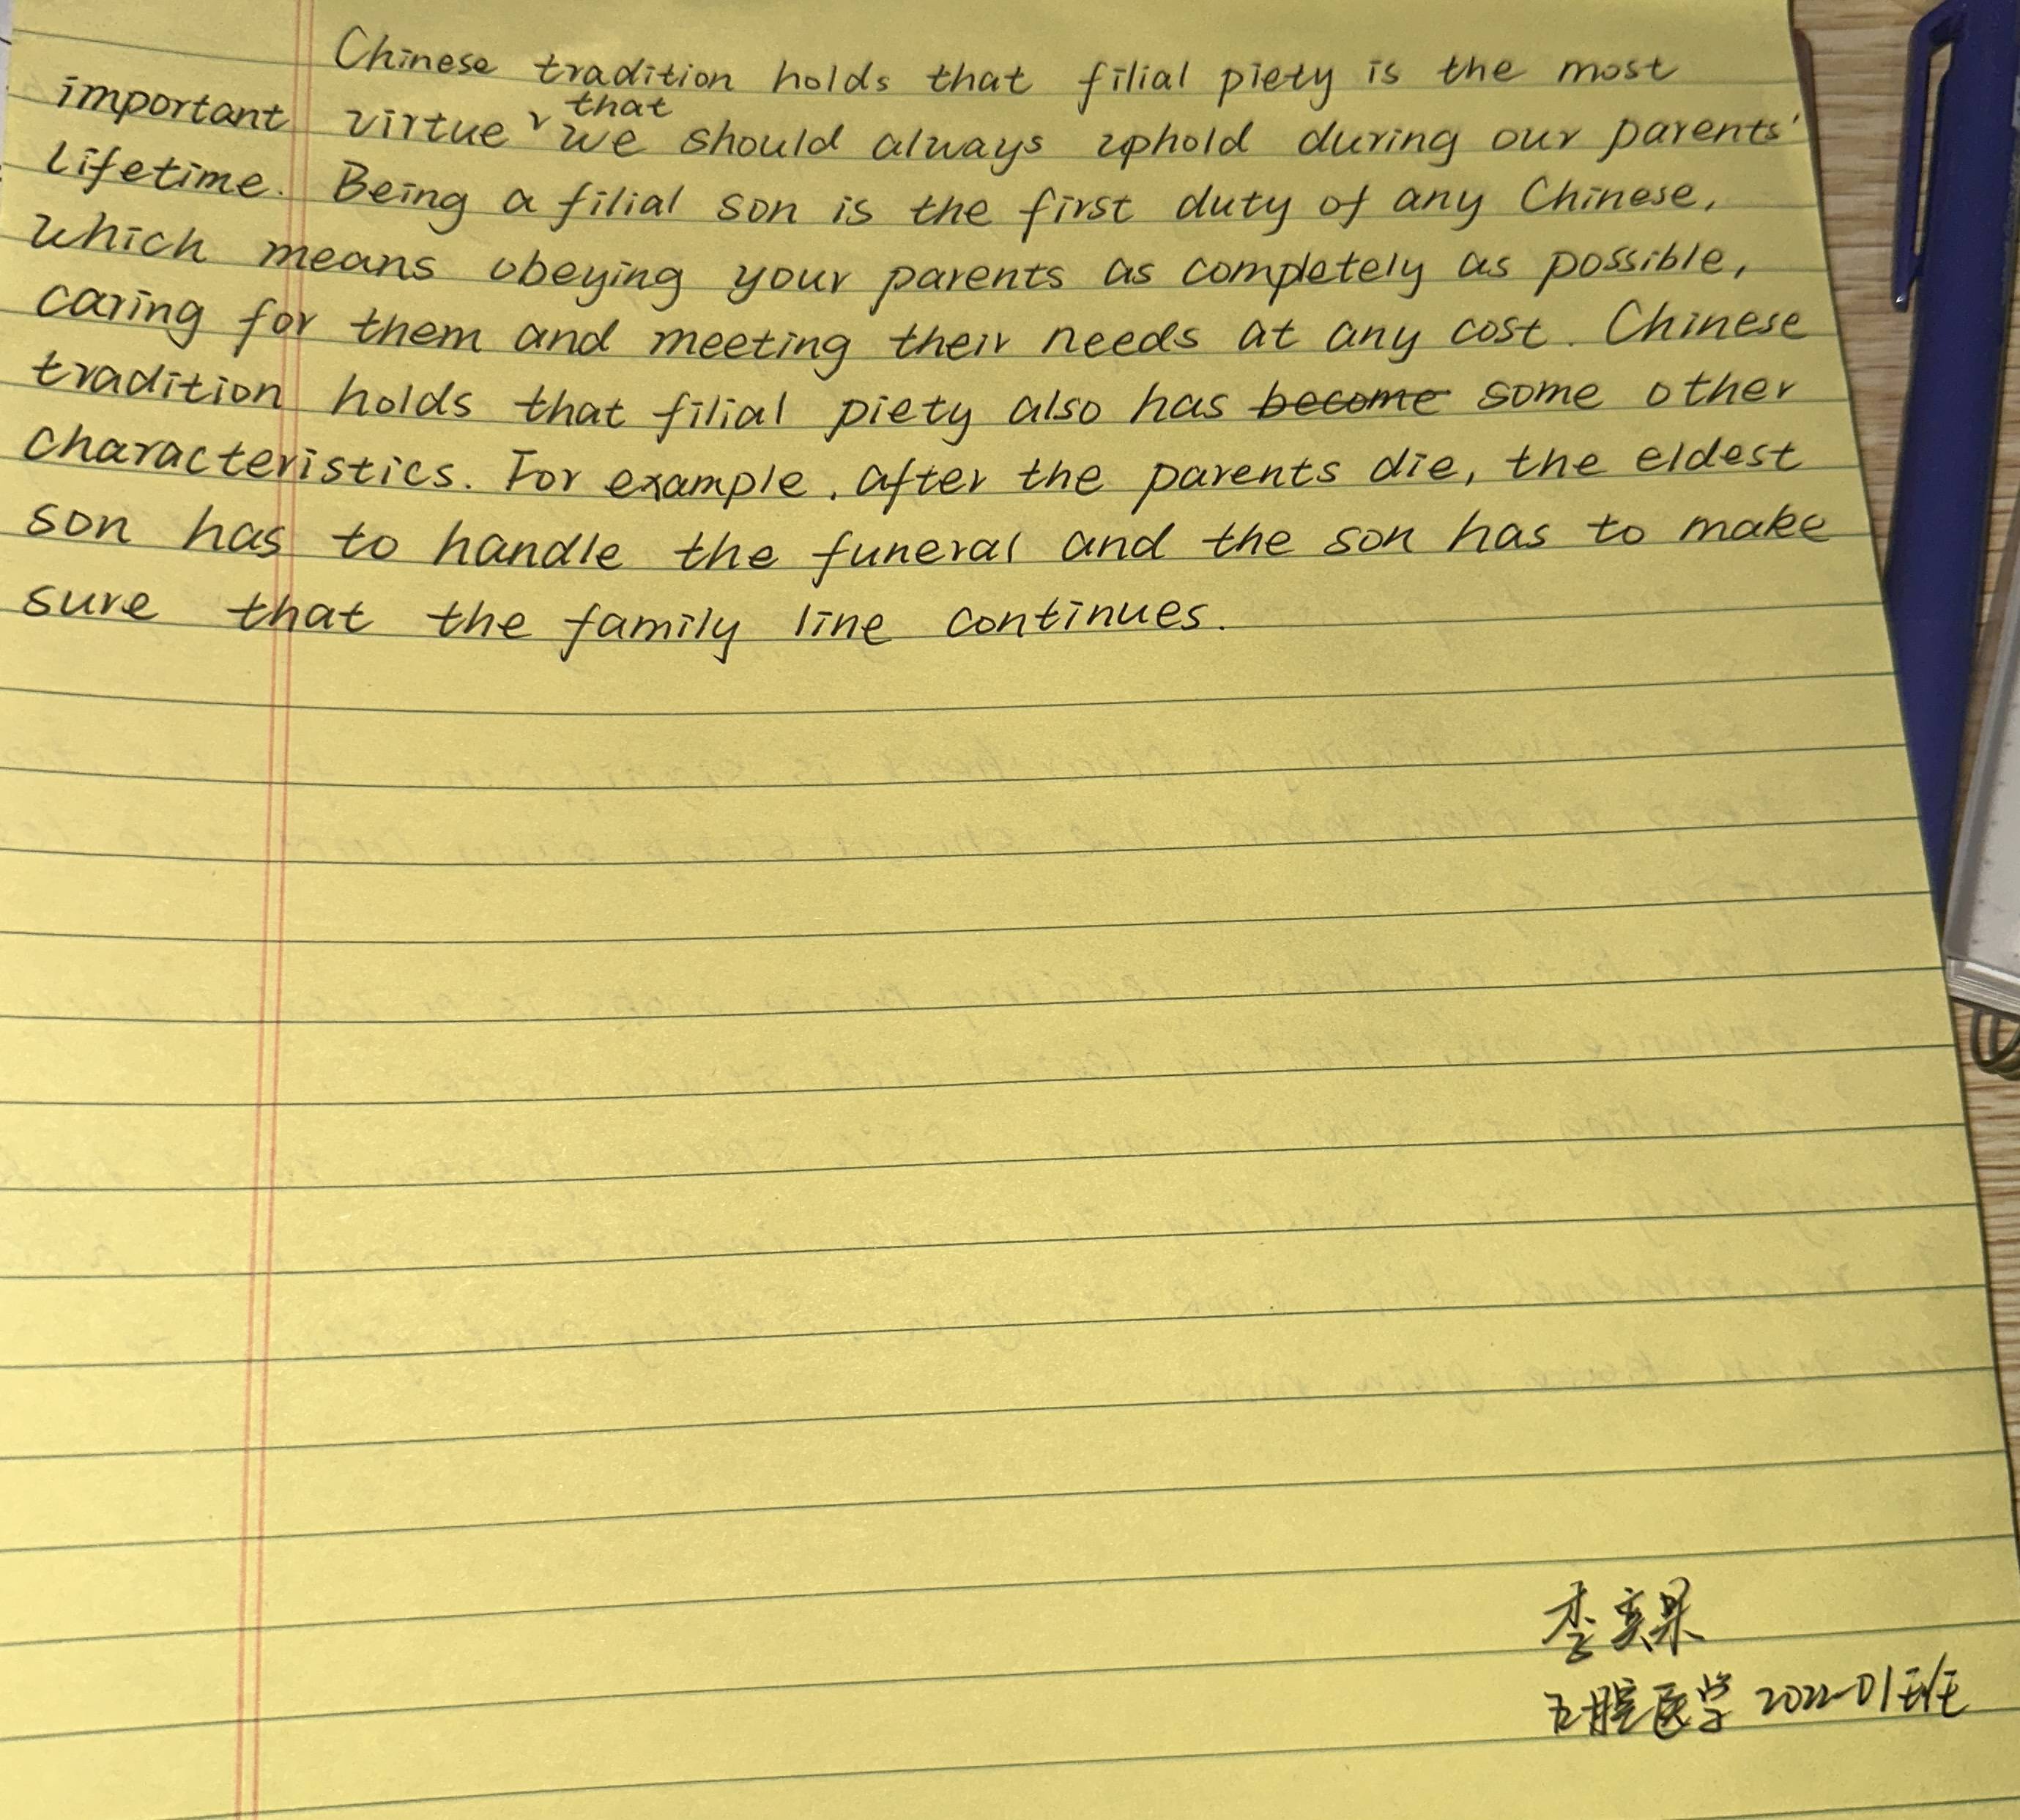 Chinese tradition holds that filial piety is the most
important virtue that we should always uphold during our parents'
lifetime. Being a filial son is the first duty of any Chinese,
which means obeying your parents as completely as possible,
caring for them and meeting their needs at any cost. Chinese
tradition holds that filial piety also has become some other
characteristics. For example, after the parents die, the eldest
son has to handle the funeral and the son has to make
sure that the family line continues.
李奕果
口腔医学 2022-01班